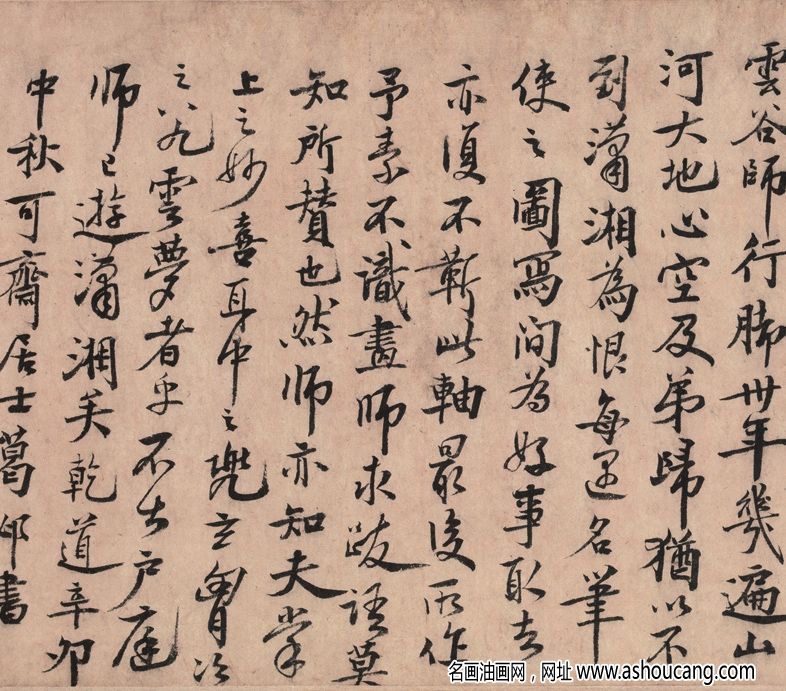 雲谷師行脚卅年幾遍山
河大地心空及第歸猶以不
到瀟湘為恨每遇名筆
使之圖寫间為好事取去
亦復不靳此軸最後所作
予素不識畫師求跋語莫
知所賛也然師亦知夫掌
上之妙喜耳中之兜玄胷次
之八九雲夢者乎不出户庭
师已遊瀟湘矣乾道辛卯
中秋可齋居士葛邲書
名画油画网，网址 www.ashoucang.com